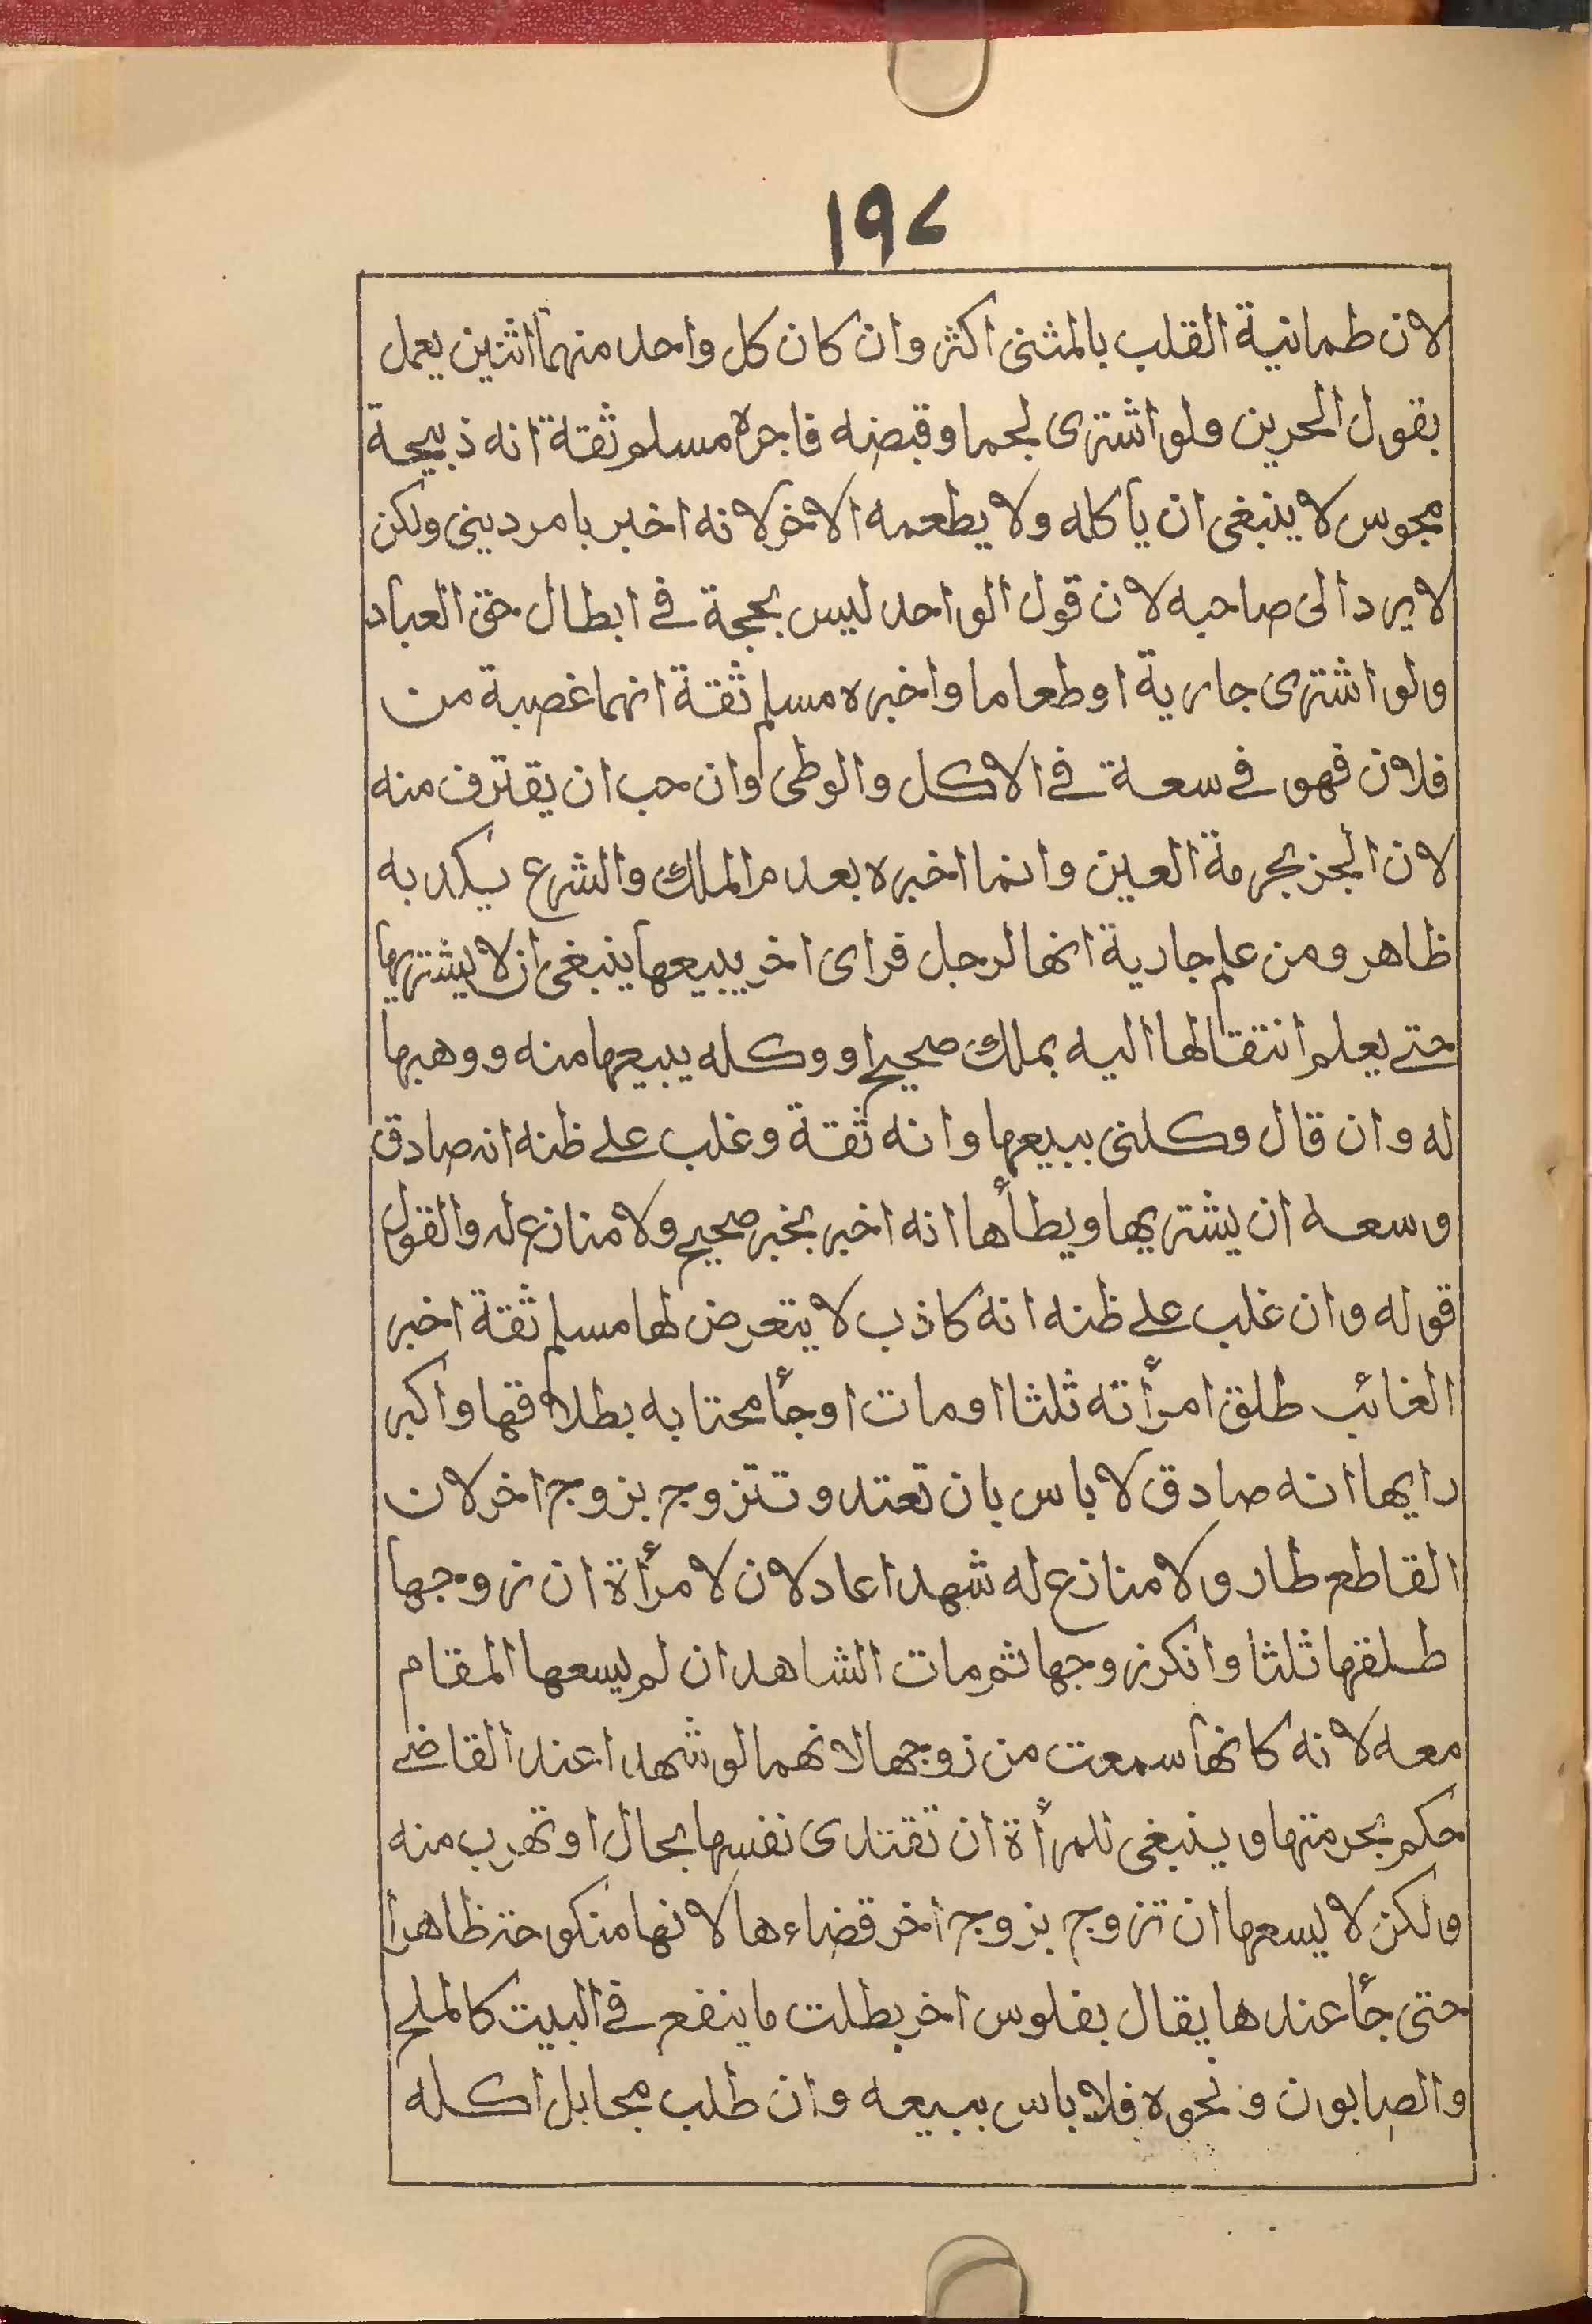 ١٩٧
لان طمانية القلب بالمثنى اكثر وان كان كل واحد منهما اثنين يعمل
بقول الحرين ولو اشترى لحما وقبضه فاجره مسلم ثقة انه ذبيحة
مجوس لا ينبغى ان يأكله ولا يطعمه الاخر لانه اخبر بامر دينى ولكن
لا يرد الى صاحبه لان قول الواحد ليس بحجة فى ابطال حق العباد
ولو اشترى جارية او طعاما واخبره مسلم ثقة انهما غصبة من
فلان فهو فى سعة فى الاكل والوطى وان حب ان يقترف منه
لان المجز بحرمة العين وانما اخبره بعدم الملك والشرع يكد به
ظاهر ومن علم جارية انها لرجل فراى اخر يبيعها ينبغى ان لا يشتريها
حتى يعلم انتقالها اليه بملك صحيح او وكله يبيعها منه ووهبها
له وان قال وكلنى ببيعها وانه ثقة وغلب على ظنه انه صادق
وسعه ان يشتريها ويطأها انه اخبر بخبر صحيح ولا منازع له والقول
قوله وان غلب على ظنه انه كاذب لا يتعرض لها مسلم ثقة اخبر
الغائب طلق امرأته ثلثا او مات او جأ محتابه بطلاقها واكبر
رايها انه صادق لا باس بان تعتد وتتزوج بزوج اخر لان
القاطع طار ولا منازع له شهدا عادلان لامرأة ان زوجها
طلقها ثلثا وانكر زوجها ثم مات الشاهدان لم يسعها المقام
معه لانه كانها سمعت من زوجها لانهما لو شهدا عند القاضى
حكم بحرمتها وينبغى للمرأة ان تقتدى نفسها بحال او تهرب منه
ولكن لا يسعها ان تزوج بزوج اخر قضاءها لانها منكوحة ظاهرا
حتى جأ عندها يقال بفلوس اخر بطلت ما ينفع فى البيت كالملح
والصابون ونحوه فلا باس ببيعه وان طلب مجابل اكله